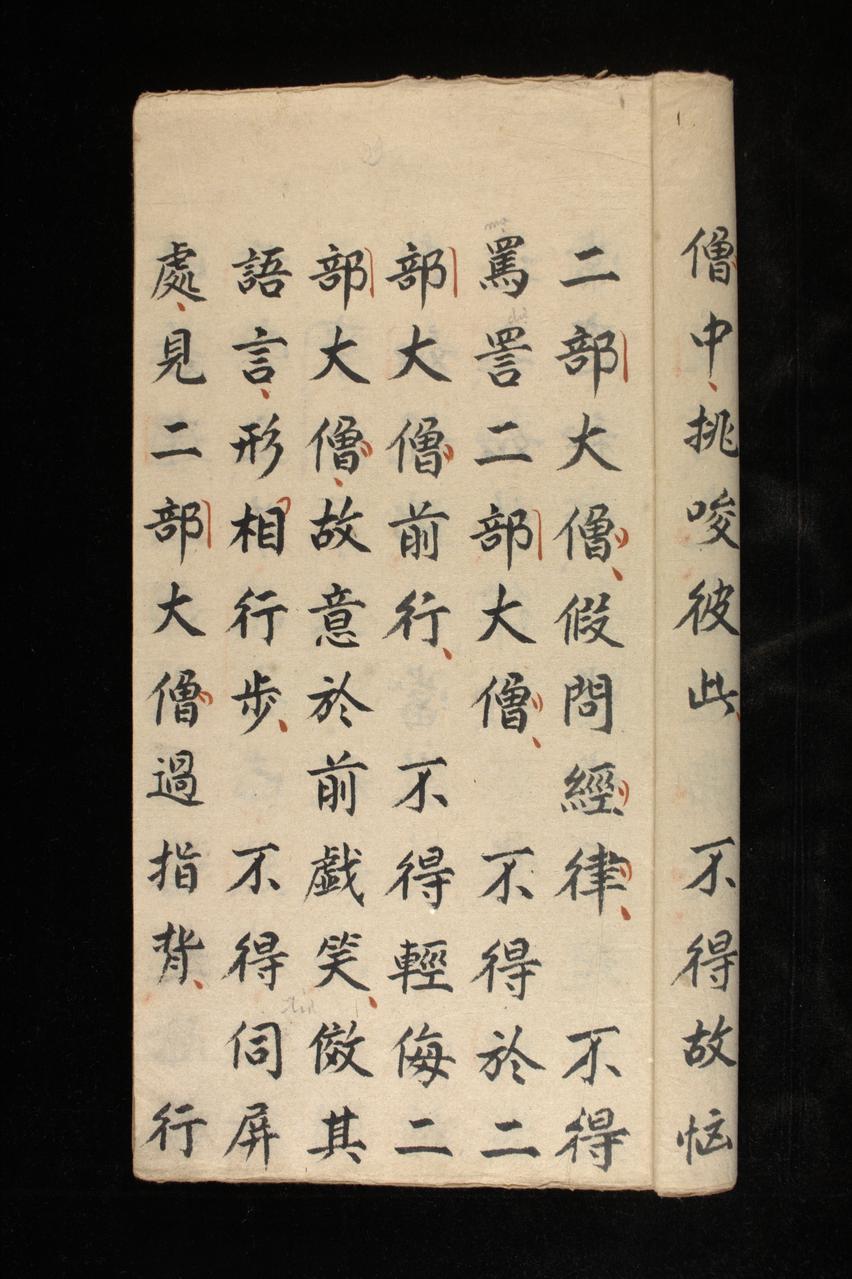 僧中挑唆彼此　不得故恼
二部大僧假問經律　不得
罵詈二部大僧　不得於二
部大僧前行　不得輕侮二
部大僧故意於前戯笑倣其
語言形相行步　不得伺屏
處見二部大僧過指背　行